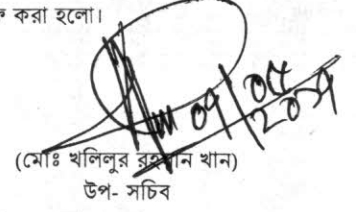 করা হলো।
০৭/০৫
২০১৭
(মোঃ খলিলুর রহমান খান)
উপ- সচিব